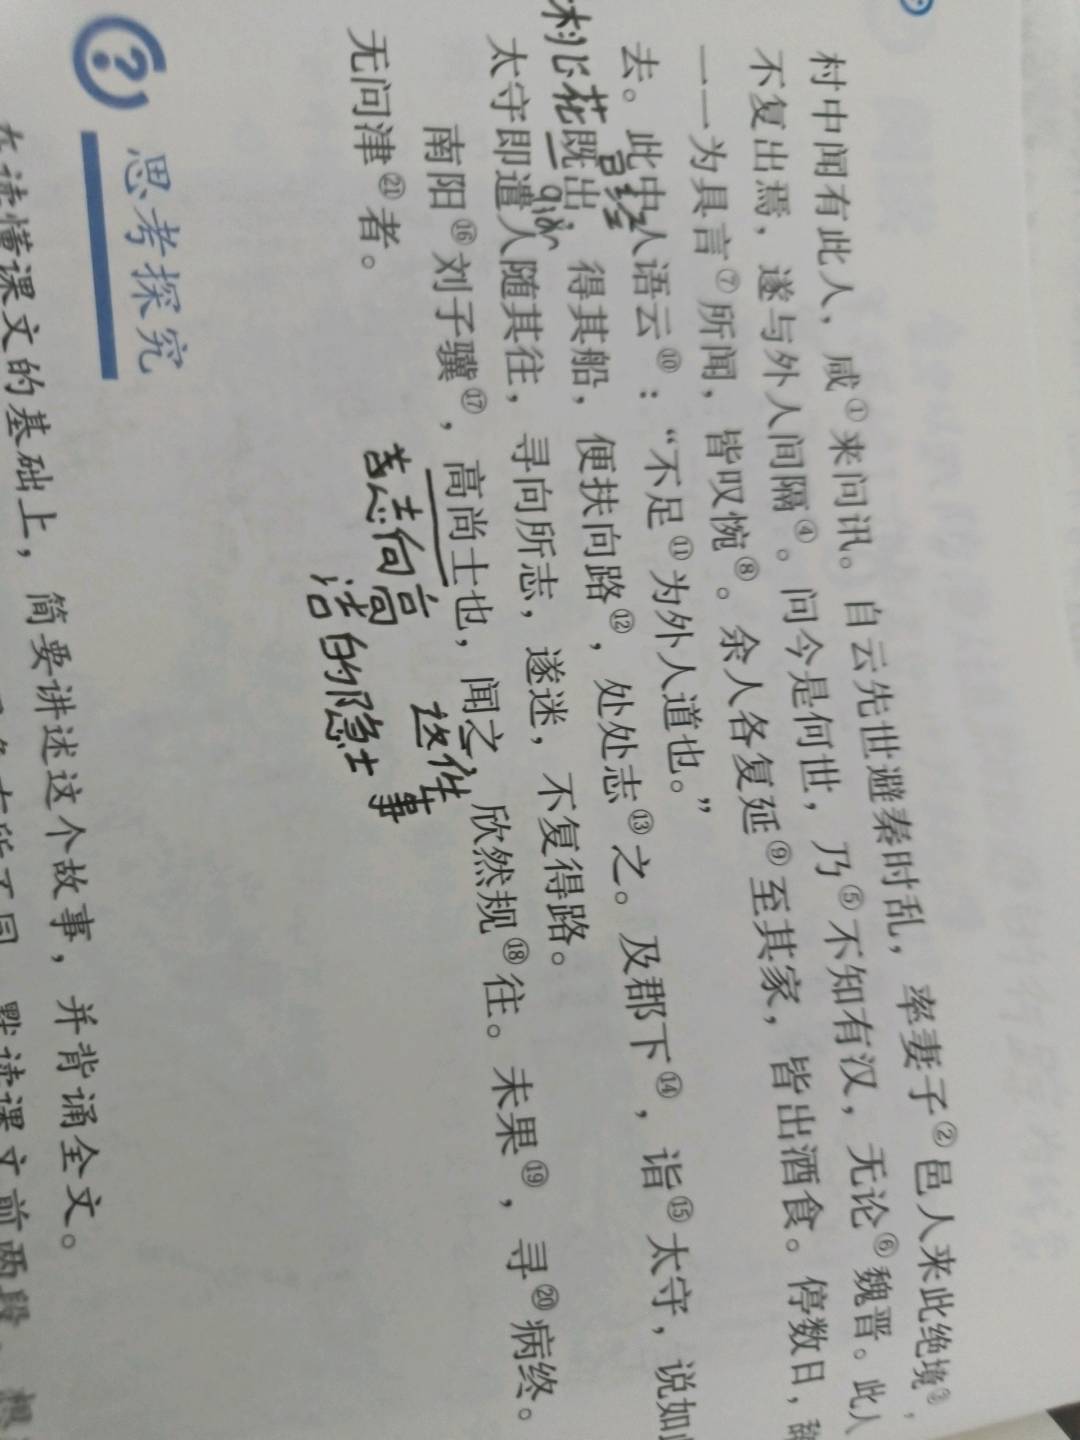 村中闻有此人，咸①来问讯。自云先世避秦时乱，率妻子②邑人来此绝境③，
不复出焉，遂与外人间隔④。问今是何世，乃⑤不知有汉，无论⑥魏晋。此人
一一为具言⑦所闻，皆叹惋⑧。余人各复延⑨至其家，皆出酒食。停数日，辞
去。此中人语云⑩：“不足⑪为外人道也。”
已经
既出，得其船，便扶向路⑫，处处志⑬之。及郡下⑭，诣⑮太守，说如
太守即遣人随其往，寻向所志，遂迷，不复得路。
qiǎn
南阳⑯刘子骥⑰，高尚士也，闻之，欣然规⑱往。未果⑲，寻⑳病终。
志向高洁的隐士
这件事
无问津㉑者。
思考探究
在读懂课文的基础上，简要讲述这个故事，并背诵全文。
课文前两段